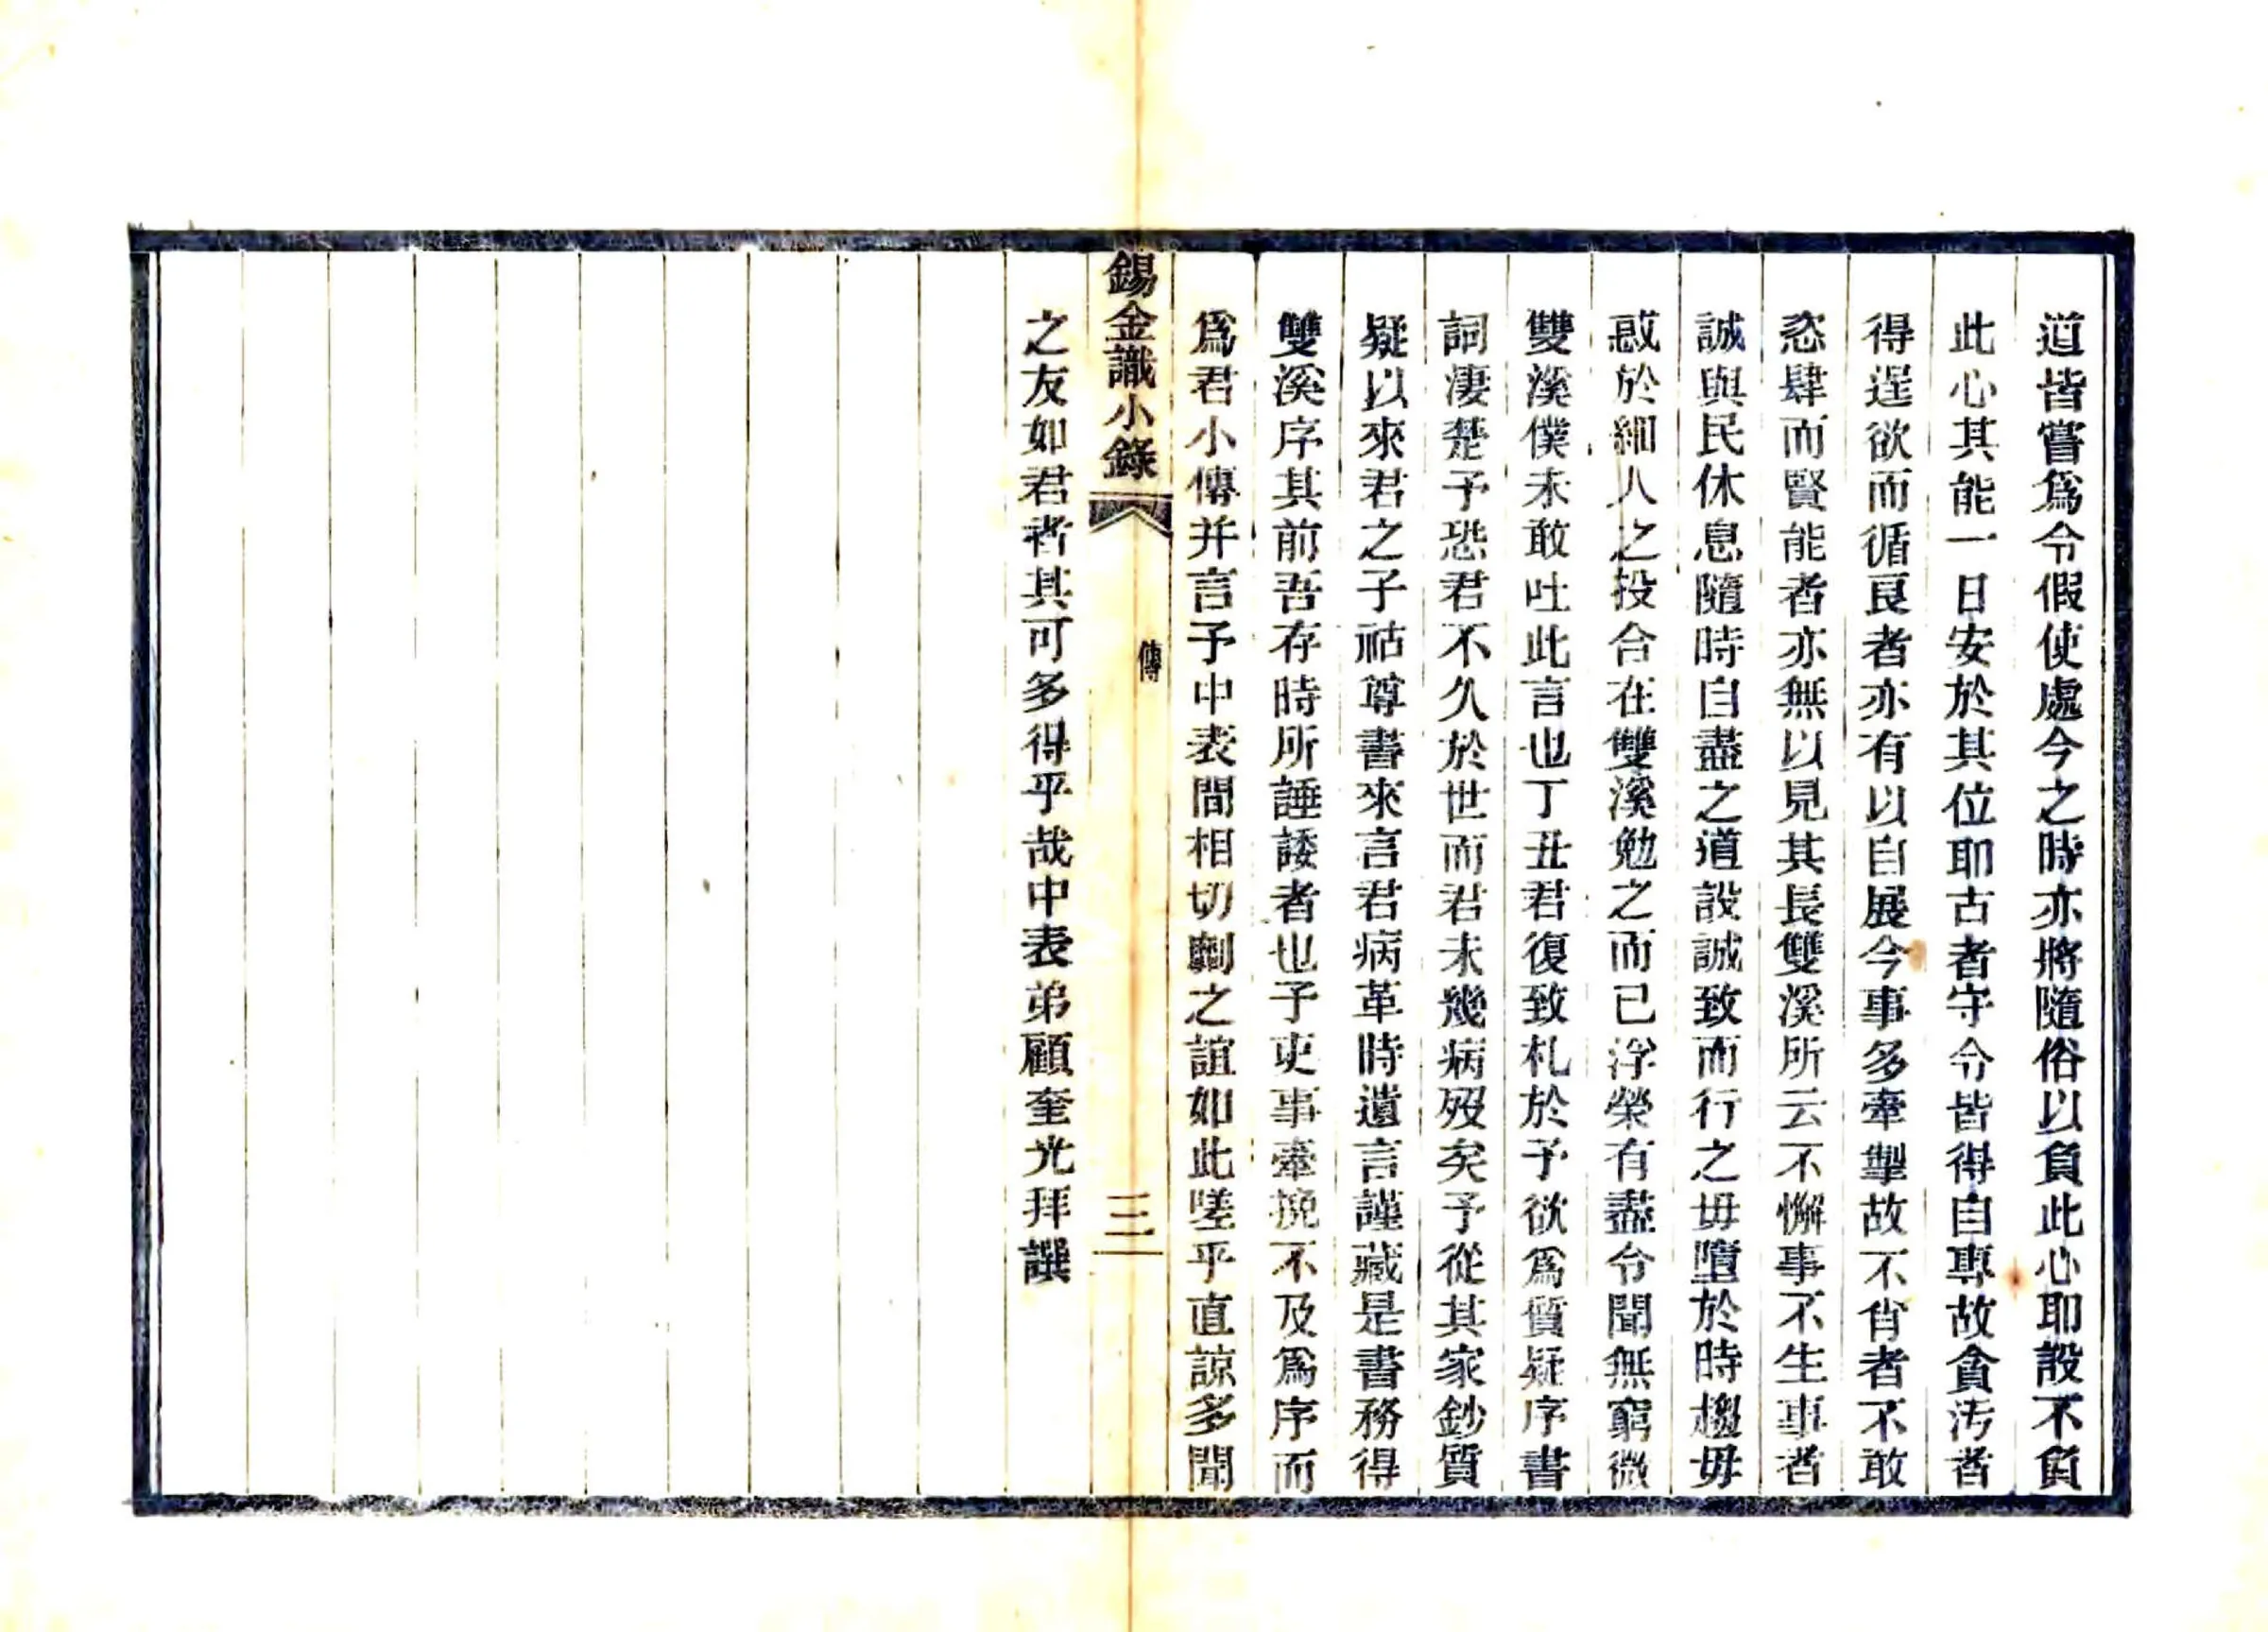 道皆嘗爲令假使處今之時亦將隨俗以負此心耶設不負
此心其能一日安於其位耶古者守令皆得自專故貪汚者
得逞欲而循良者亦有以自展今事多牽掣故不肖者不敢
恣肆而賢能者亦無以見其長雙溪所云不懈事不生事者
誠與民休息隨時自盡之道設誠致而行之毋墮於時趨毋
惑於細人之投合在雙溪勉之而已浮榮有盡令聞無窮微
雙溪僕未敢吐此言也丁丑君復致札於予欲爲質疑序書
詞凄楚予恐君不久於世而君未幾病歿矣予從其家鈔質
疑以來君之子祜尊書來言君病革時遺言謹藏是書務得
雙溪序其前吾存時所諈諉者也予吏事牽挽不及爲序而
爲君小傳并言予中表間相切劘之誼如此嗟乎直諒多聞
錫金識小錄
傳
三
之友如君者其可多得乎哉中表弟顧奎光拜譔